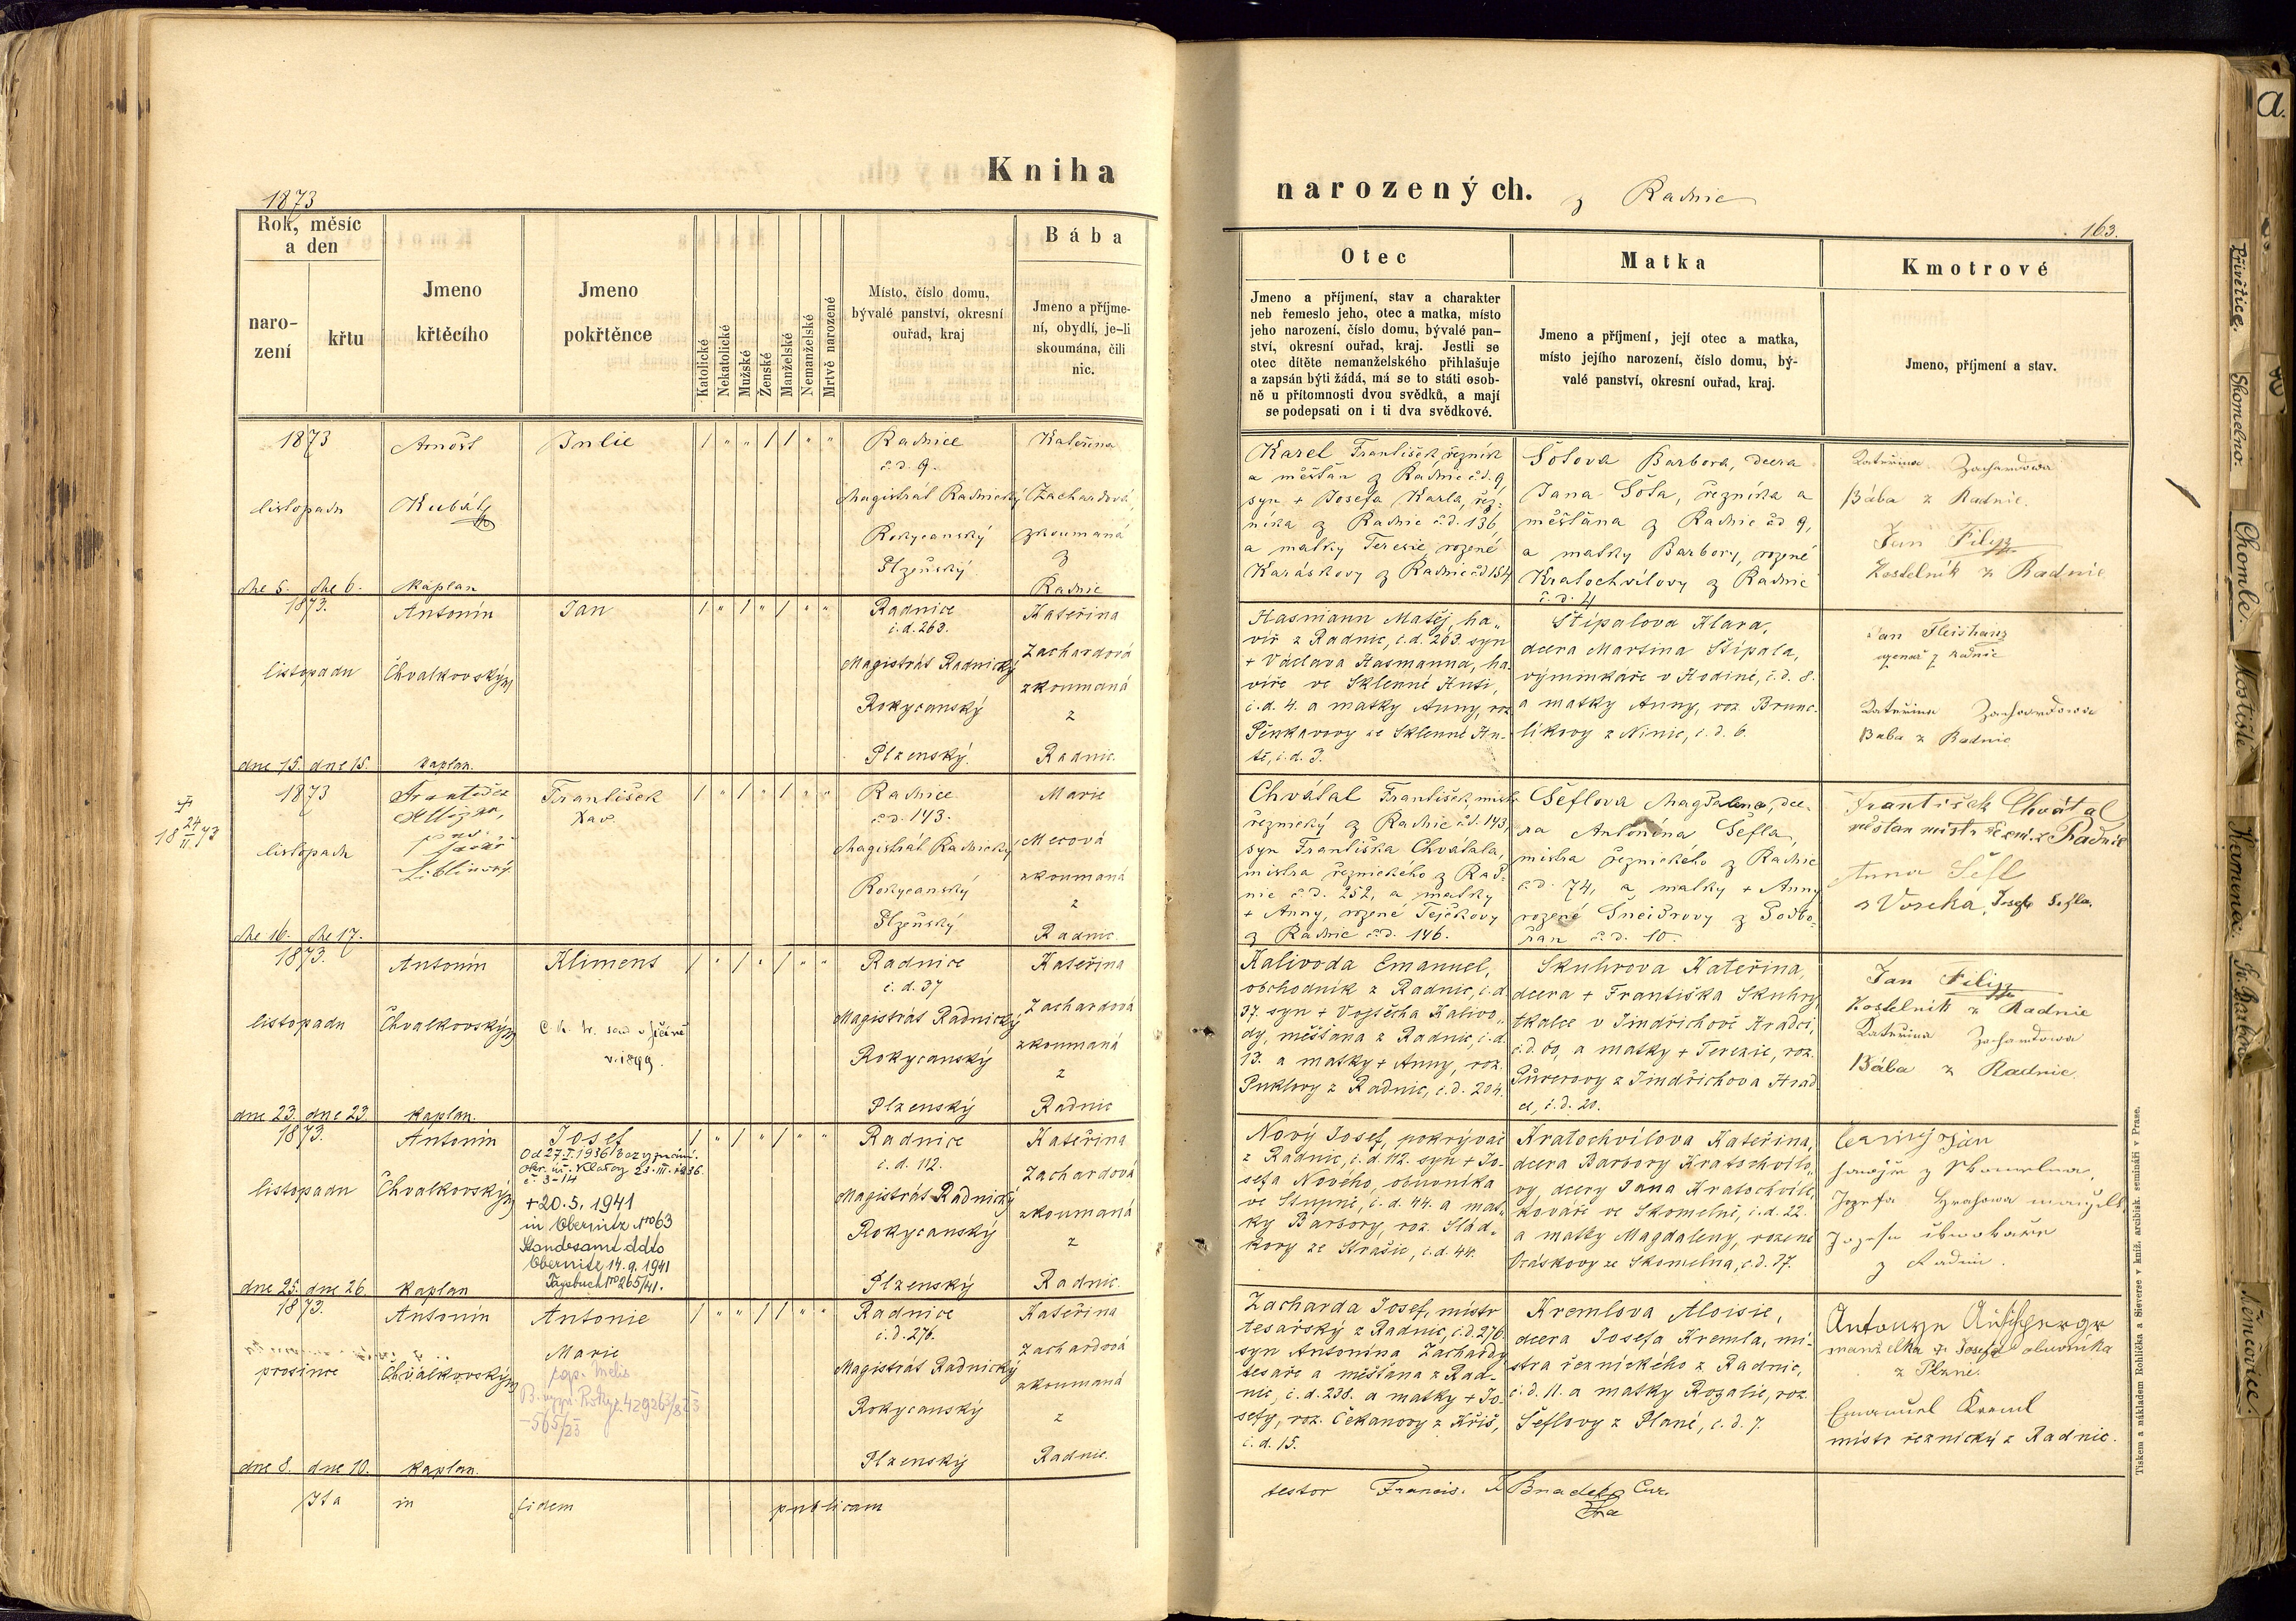 Kniha
narozených.
z Radnic
1873
163.
Rok, měsíc
a den
naro-
zení
křtu
Jmeno
křtěcího
Jmeno
pokřtěnce
Katolické
Nekatolické
Mužské
Ženské
Manželské
Nemanželské
Mrtvě narozené
Místo, číslo domu,
bývalé panství, okresní
ouřad, kraj
Bába
Jmeno a příjme-
ní, obydlí, je-li
skoumána, čili
nic.
Otec
Jmeno a příjmení, stav a charakter
neb řemeslo jeho, otec a matka, místo
jeho narození, číslo domu, bývalé pan-
ství, okresní ouřad, kraj. Jestli se
otec dítěte nemanželského přihlašuje
a zapsán býti žádá, má se to státi osob-
ně u přítomnosti dvou svědků, a mají
se podepsati on i ti dva svědkové.
Matka
Jmeno a příjmení, její otec a matka,
místo jejího narození, číslo domu, bý-
valé panství, okresní ouřad, kraj.
Kmotrové
Jmeno, příjmení a stav.
1873
listopadu
dne 5. dne 6.
Arnošt
Kubát
kaplan
Julie
Radnice
č. d. 9.
Magistrát Radnický
Rokycanský
Plzeňský
Kateřina
Zachardová,
zkoumaná
z
Radnic
Karel František, řezník
a měšťan z Radnic č.d. 9,
syn + Josefa Karla, řez-
níka z Radnic č.d. 136,
a matky Teresie, rozené
Karáskovy z Radnic č.d 154
Šotova Barbora, dcera
Jana Šota, řezníka a
měšťana z Radnic čd 9,
a matky Barbory, rozené
Kratochvílovy z Radnic
č. d. 4
Kateřina Zachardowa
Bába z Radnic.
Jan Filip
Kostelník z Radnic
1873.
listopadu
dne 15. dne 15.
Antonín
Chvalkovský
kaplan.
Jan
Radnice
č. d. 263.
Magistrát Radnický
Rokycanský
Plzenský.
Kateřina
Zachardová
zkoumaná
z
Radnic.
Hasmann Matěj, ha-
víř z Radnic, č.d. 263. syn
+ Václava Hasmanna, ha-
víře ve Sklenné Huti,
č. d. 4. a matky Anny, roz.
Pěnkavovy ze Sklenné Hu-
tě, č. d. 3.
Štípalova Klara,
dcera Martina Štípala,
výminkáře v Hodině, č. d. 8.
a matky Anny, roz. Brunc-
líkovy z Ninic, č. d. 6.
Jan Fleishanz
z Radnic
Kateřina Zachardowa
Baba z Radnic
1873
listopadu
dne 16. dne 17.
František
Liblínský
František
Xav.
Radnice
č. d. 143.
Magistrát Radnický
Rokycanský
Plzeňský
Marie
Mecová
zkoumaná
z
Radnic
Chvátal František, mistr
řeznický z Radnic č.d. 143,
syn Františka Chvátala,
mistra řeznického z Rad-
nic č. d. 252, a matky
+ Anny, rozené Tejčkovy
z Radnic č.d. 146.
Šeflova Magdalena, dce-
ra Antonína Šefla,
mistra řeznického z Radnic
č.d. 74, a matky + Anny
rozené Šneidrovy z Podbo-
řan č. d. 10.
František Chvátal
měštan mistr řezni. z Radnic
Anna Šefl
z Voseka, Josefa Šefla.
1873.
listopadu
dne 23. dne 23.
Antonín
Chvalkovský
kaplan.
Kliment
v r. 1899.
Radnice
č. d. 37
Magistrát Radnický
Rokycanský
Plzenský
Kateřina
Zachardová
zkoumaná
z
Radnic
Kalivoda Emanuel,
obchodník z Radnic, č. d.
37. syn + Vojtěcha Kalivo-
dy, měšťana z Radnic, č. d.
13. a matky + Anny, roz.
Puklovy z Radnic, č.d. 204.
Skuhrova Kateřina,
dcera + Františka Skuhry,
tkalce v Jindřichově Hradci,
č.d. 60, a matky + Terezie, roz.
Půrerovy z Jindřichova Hrad
ce, č. d. 20.
Jan Filip
Kostelník z Radnic
Kateřina Zachardowa
Bába z Radnic
1873.
listopadu
dne 25. dne 26.
Antonín
Chvalkovský
kaplan
Josef
Od 27.I.1936 bez vyznání.
Okr. úř. Klatovy 23.III.1936.
č. 3-14
+ 20.5. 1941
in Obernitz No 63
Standesamt ddto
Obernitz 14.9.1941
Tagebuch No 265/41.
Radnice
č. d. 112.
Magistrát Radnický
Rokycanský
Plzenský
Kateřina
Zachardová
zkoumaná
z
Radnic.
Nový Josef, pokrývač
z Radnic, č. d. 112. syn + Jo-
sefa Nového, obuvníka
ve Stupně, č. d. 44. a mat-
ky Barbory, roz. Slád-
kovy ze Strašic, č. d. 44.
Kratochvílova Kateřina,
dcera Barbory Kratochvílo-
vy, dcery Jana Kratochvíle,
kováře ve Skomelně, č. d. 22.
a matky Magdaleny, rozené
Vráskovy ze Skomelna, č. d. 37.
1873.
prosince
dne 8. dne 10.
Antonín
Chvalkovský
kaplan.
Antonie
Marie
Radnice
č. d. 276.
Magistrát Radnický
Rokycanský
Plzenský
Kateřina
Zachardová
zkoumaná
z
Radnic.
Zacharda Josef, mistr
tesařský z Radnic, č.d. 276.
syn Antonína Zachardy
tesaře a měšťana z Rad-
nic, č. d. 238. a matky + Jo-
sefy, roz. Čekanovy z Kříš,
č. d. 15.
Kremlova Aloisie,
dcera Josefa Kremla, mi-
stra řeznického z Radnic,
č. d. 11. a matky Rozalie, roz.
Šeflovy z Plané, č. d. 7.
manželka Josefa obuvníka
z Plzně.
Emanuel Kreml
mistr řeznický z Radnic.
Ita in fidem publicam
testor Francis.
Tiskem a nákladem Rohlíčka a Sieverse v kníž. arcibisk. semináři v Praze.
a.
Přívětice.
Skomelno.
Chomle.
Mostiště
Kamenec.
Sv. Barbora
Němčovice.